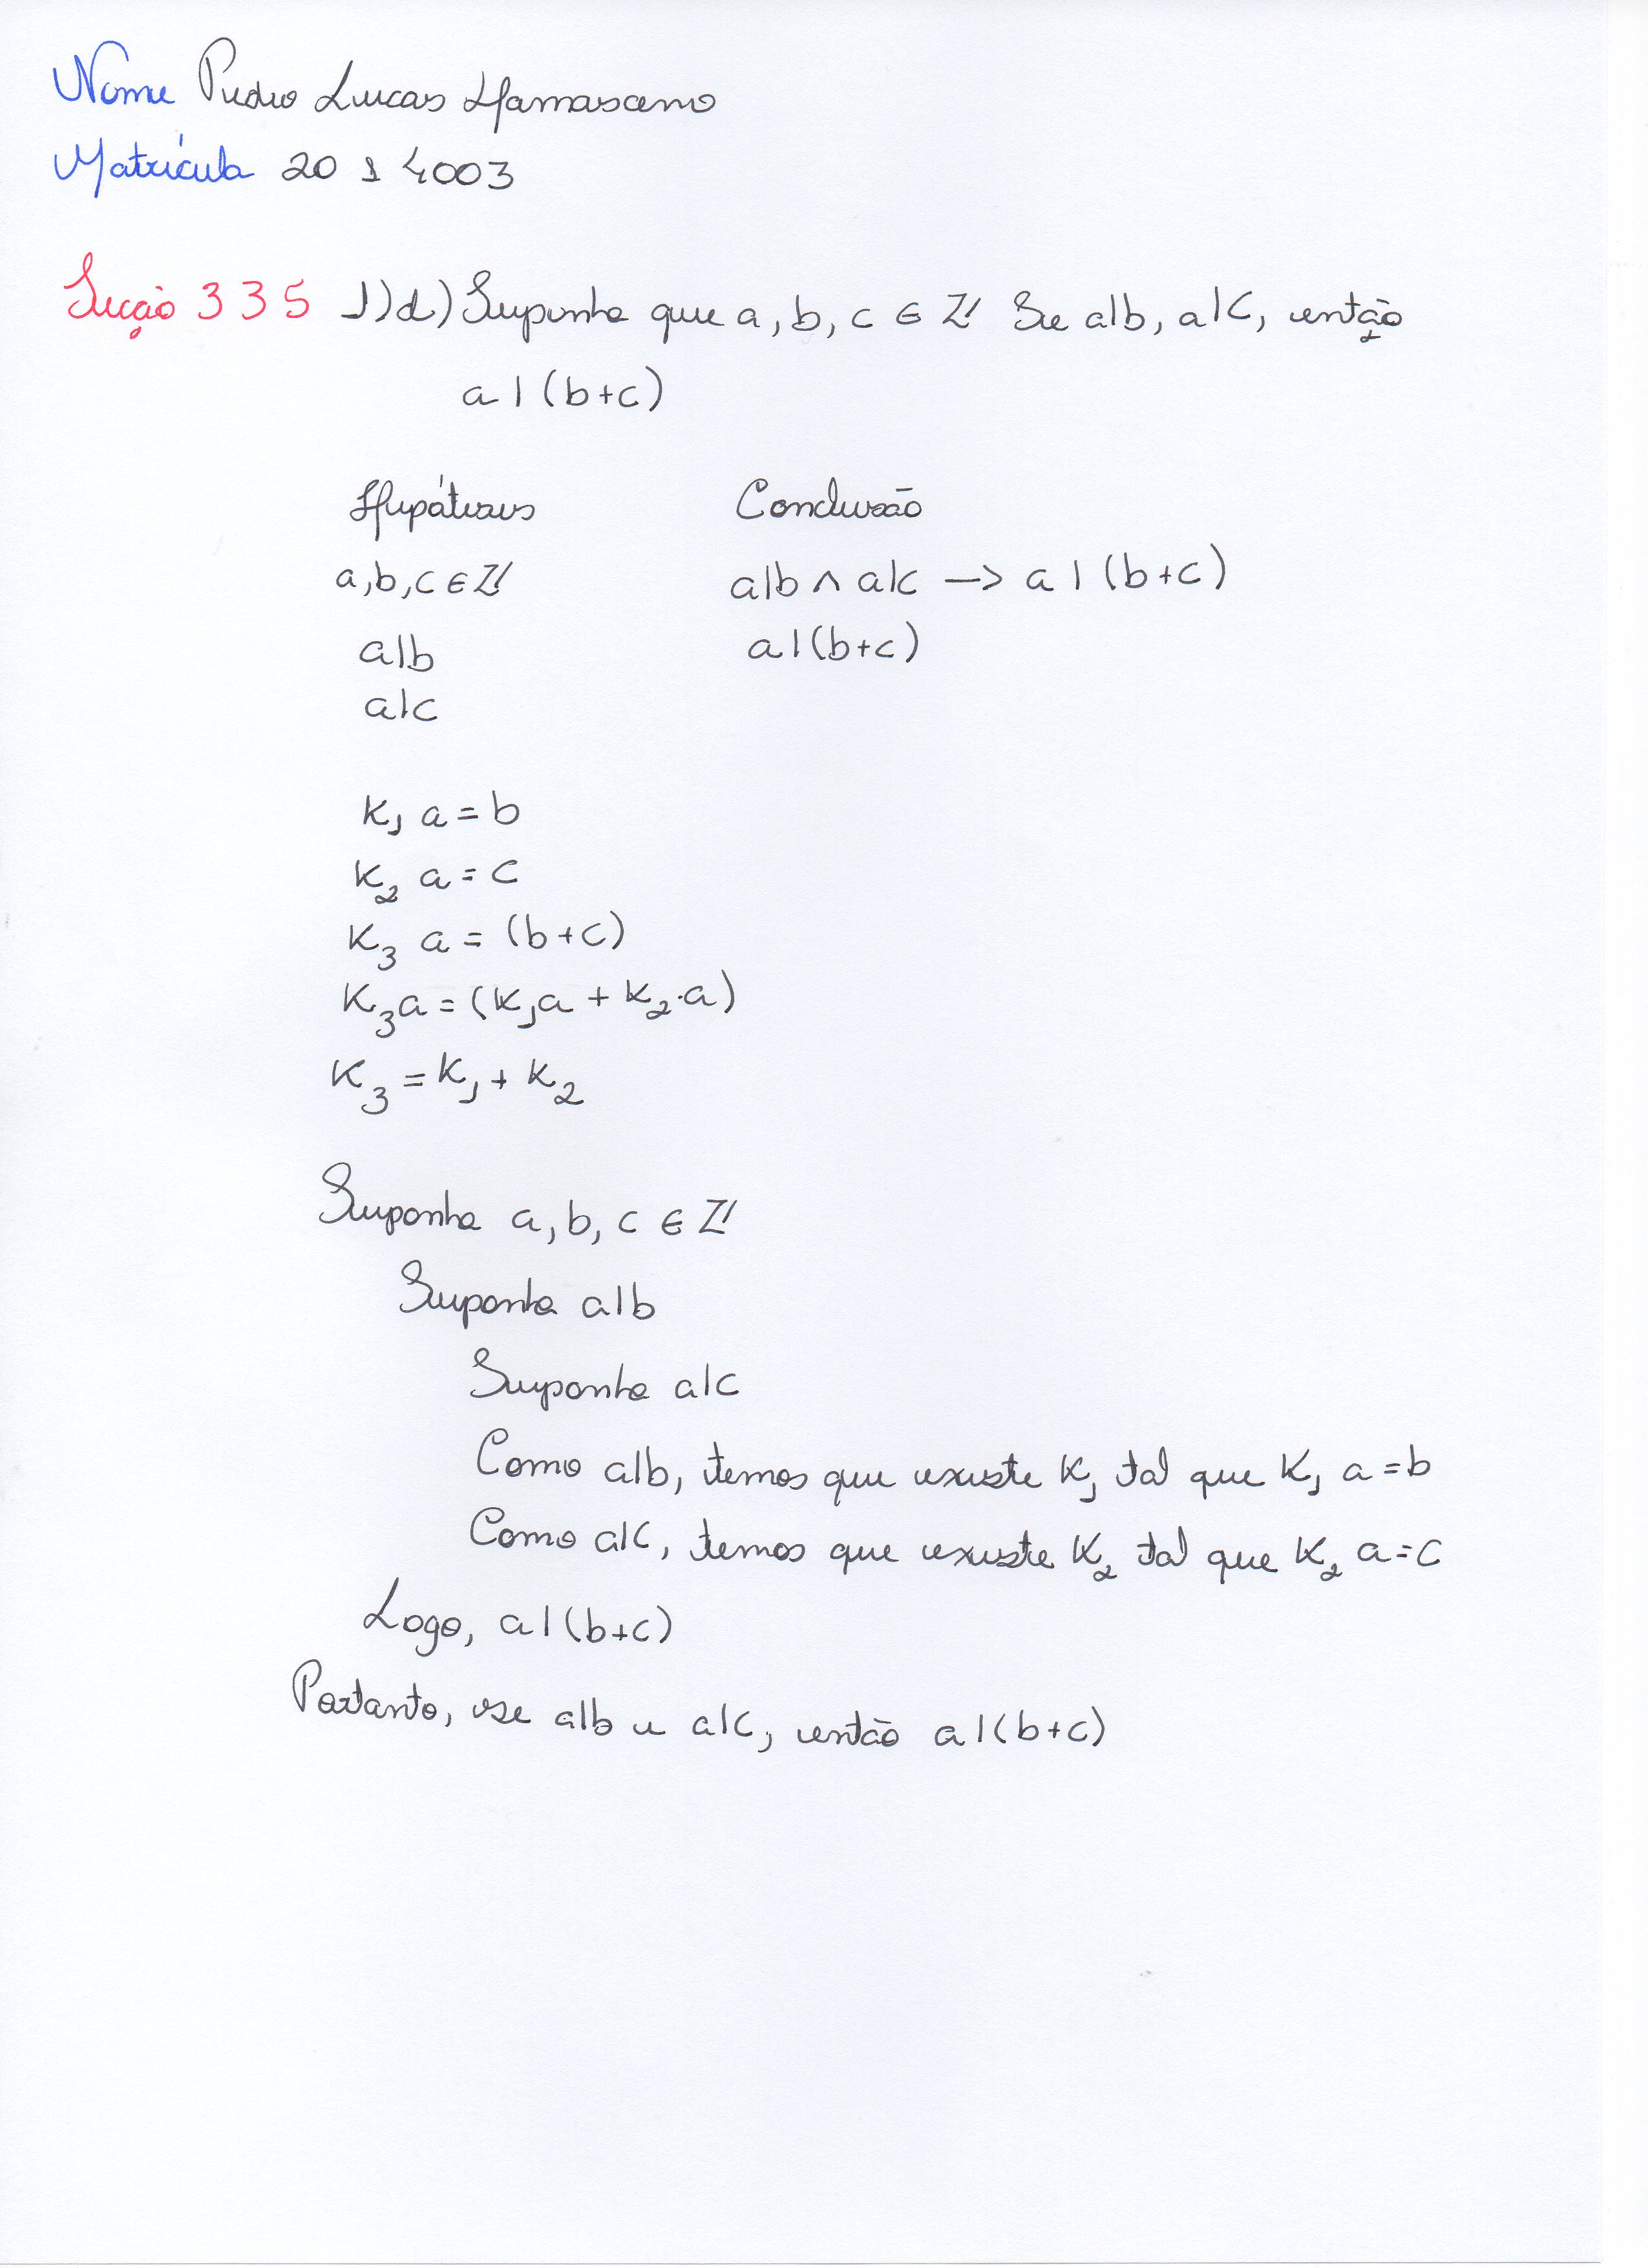 Nome Pedro Lucas Damasceno
Matrícula 20 1 4003
Secção 3 3 5 1)d) Suponha que a, b, c ∈ ℤ Se a|b, a|c, então
a | (b+c)
Hipóteses Conclusão
a,b,c ∈ ℤ a|b ∧ a|c —> a | (b+c)
a|b a|(b+c)
a|c
K₁ a = b
K₂ a = c
K₃ a = (b+c)
K₃a = (K₁a + K₂·a)
K₃ = K₁ + K₂
Suponha a, b, c ∈ ℤ
Suponha a|b
Suponha a|c
Como a|b, temos que existe K₁ tal que K₁ a = b
Como a|c, temos que existe K₂ tal que K₂ a = c
Logo, a | (b+c)
Portanto, se a|b e a|c, então a | (b+c)